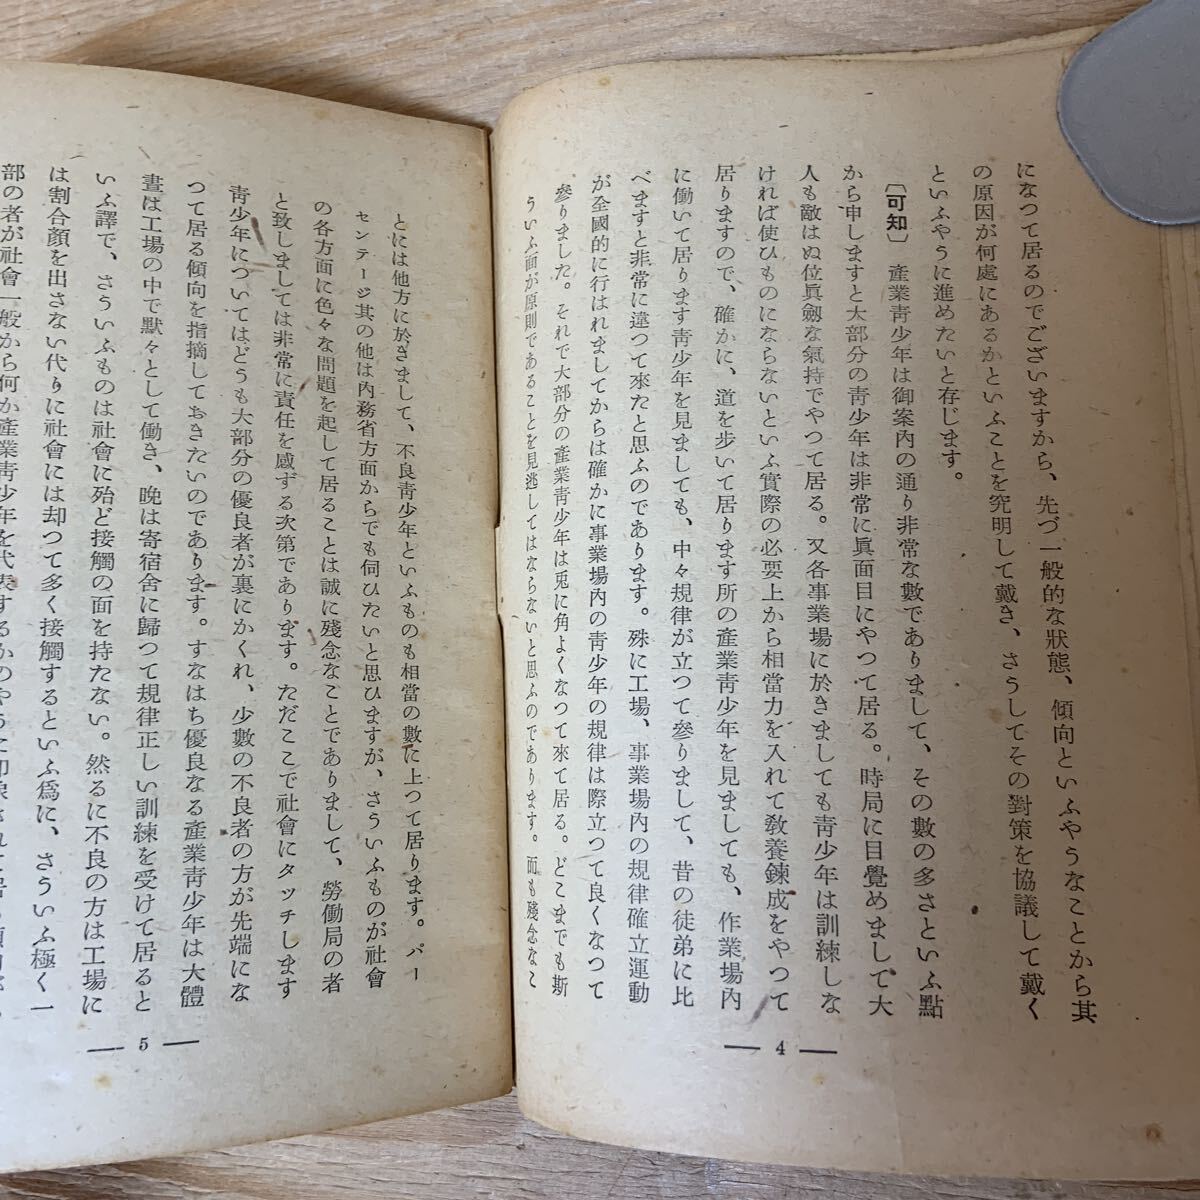 になつて居るのでございますから、先づ一般的な狀態、傾向といふやうなことから其
の原因が何處にあるかといふことを究明して戴き、さうしてその對策を協議して戴く
といふやうに進めたいと存じます。
〔可知〕 產業靑少年は御案內の通り非常な數でありまして、その數の多さといふ點
から申しますと大部分の靑少年は非常に眞面目にやつて居る。時局に目覺めまして大
人も敵はぬ位眞劔な氣持でやつて居る。又各事業場に於きましても靑少年は訓練しな
ければ使ひものにならないといふ實際の必要上から相當力を入れて敎養鍊成をやつて
居りますので、確かに、道を步いて居ります所の產業靑少年を見ましても、作業場內
に働いて居ります靑少年を見ましても、中々規律が立つて參りまして、昔の徒弟に比
べますと非常に違つて來たと思ふのであります。殊に工場、事業場內の規律確立運動
が全國的に行はれましてからは確かに事業場內の靑少年の規律は際立つて良くなつて
參りました。それで大部分の產業靑少年は兎に角よくなつて來て居る。どこまでも斯
ういふ面が原則であることを見逃してはならないと思ふのであります。而も殘念なこ
— 4 —
とには他方に於きまして、不良靑少年といふものも相當の數に上つて居ります。パー
センテージ其の他は內務省方面からでも伺ひたいと思ひますが、さういふものが社會
の各方面に色々な問題を起して居ることは誠に殘念なことでありまして、勞働局の者
と致しましては非常に責任を感ずる次第であります。ただここで社會にタッチします
靑少年についてはどうも大部分の優良者が裏にかくれ、少數の不良者の方が先端にな
つて居る傾向を指摘しておきたいのであります。すなはち優良なる產業靑少年は大體
晝は工場の中で默々として働き、晚は寄宿舍に歸つて規律正しい訓練を受けて居ると
いふ譯で、さういふものは社會に殆ど接觸の面を持たない。然るに不良の方は工場に
は割合顏を出さない代りに社會には却つて多く接觸するといふ爲に、さういふ極く一
部の者が社會一般から何か產業靑少年を代表するかのやうな印象され
— 5 —